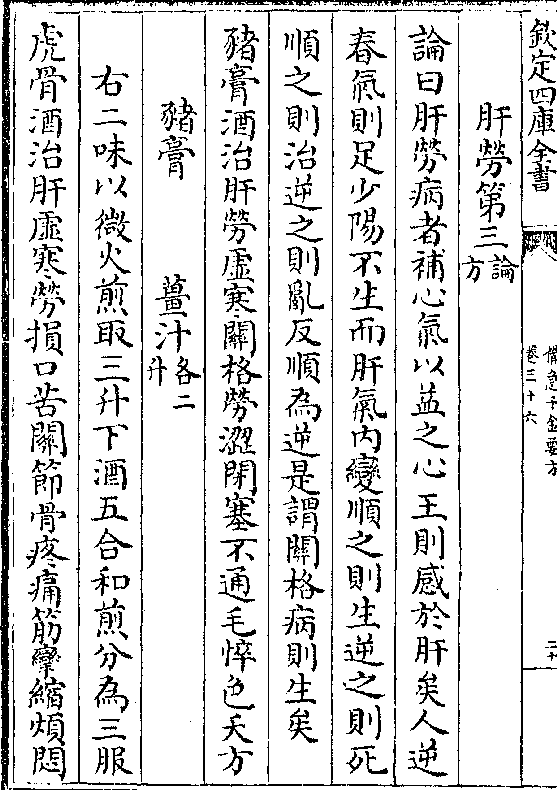 欽定四庫全書
備急千金要方
卷三十六
二十
肝勞第三論方
論曰肝勞病者補心氣以益之心王則感於肝矣人逆
春氣則足少陽不生而肝氣內變順之則生逆之則死
順之則治逆之則亂反順為逆是謂關格病則生矣
豬膏酒治肝勞虛寒關格勞澀閉塞不通毛悴色夭方
豬膏 薑汁各二升
右二味以微火煎取三升下酒五合和煎分為三服
虎骨酒治肝虛寒勞損口苦關節骨疼痛筋攣縮煩悶